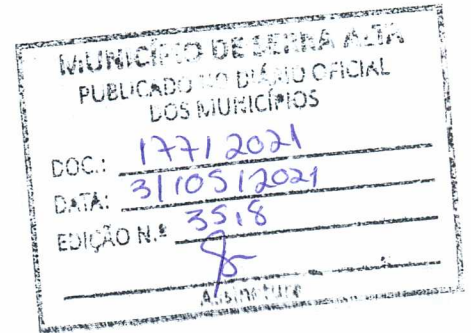 MUNICÍPIO DE SERRA ALTA
PUBLICADO NO DIÁRIO OFICIAL
DOS MUNICÍPIOS
DOC.: 177/2021
DATA: 31/05/2021
EDIÇÃO N.º 3518
Assinatura